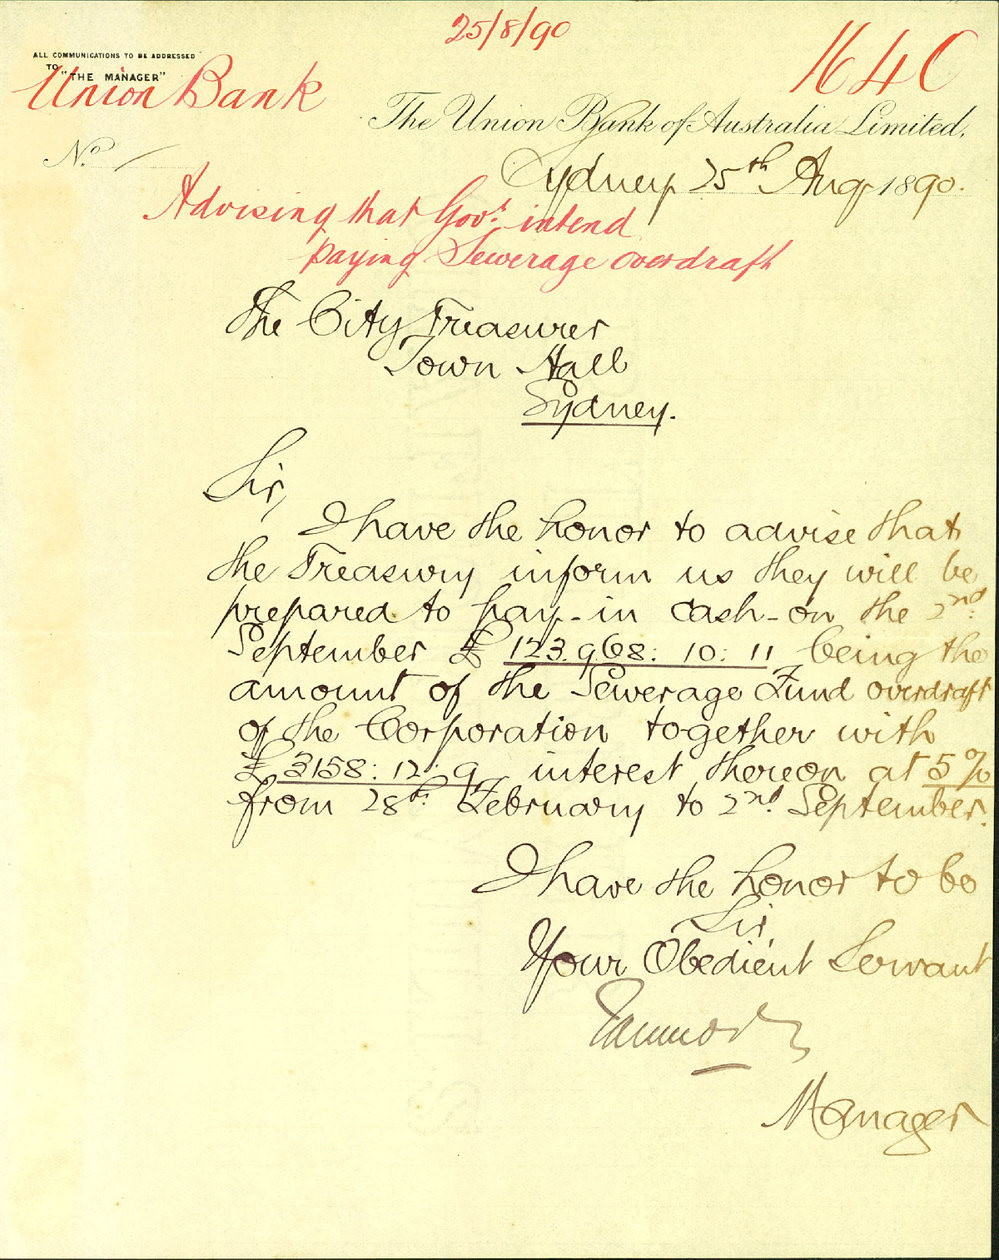 25/8/90
1640
ALL COMMUNICATIONS TO BE ADDRESSED
TO "THE MANAGER"
Union Bank
The Union Bank of Australia Limited.
No.
Sydney 25th Aug 1890.
Advising that Govt. intend
paying Sewerage overdraft
The City Treasurer
Town Hall
Sydney.
Sir,
I have the honor to advise that
the Treasury inform us they will be
prepared to pay - in cash - on the 2nd.
September £ 123.968: 10: 11 being the
amount of the Sewerage Fund overdraft
of the Corporation together with
£ 3158: 12: 9 interest thereon at 5%
from 28th. February to 2nd. September.
I have the honor to be
Sir
Your Obedient Servant
Manager